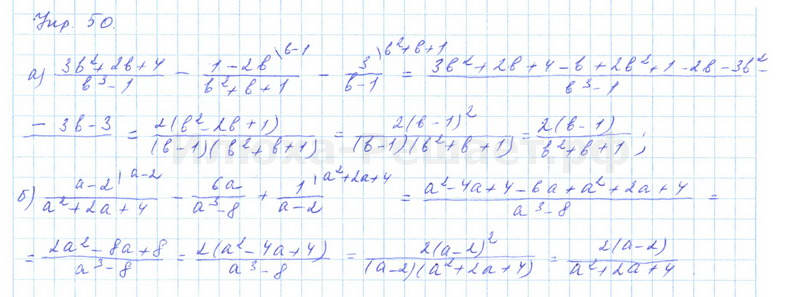 Упр. 50.
а) (3b²+2b+4)/(b³-1) - (1-2b)/(b²+b+1) \b-1 - 3/(b-1) \b²+b+1 = (3b²+2b+4-b+2b²+1-2b-3b²-
-3b-3) = 2(b²-2b+1)/((b-1)(b²+b+1)) = 2(b-1)²/((b-1)(b²+b+1)) = 2(b-1)/(b²+b+1) ;
б) (a-2)/(a²+2a+4) \a-2 - 6a/(a³-8) + 1/(a-2) \a²+2a+4 = (a²-4a+4-6a+a²+2a+4)/(a³-8) =
= (2a²-8a+8)/(a³-8) = 2(a²-4a+4)/(a³-8) = 2(a-2)²/((a-2)(a²+2a+4)) = 2(a-2)/(a²+2a+4) .